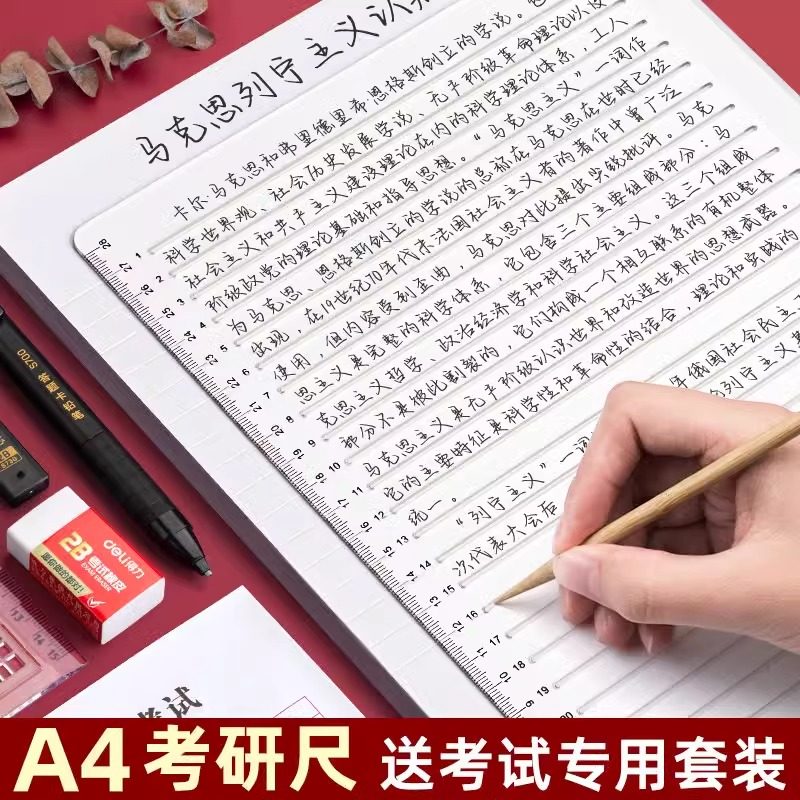 马克思列宁主义认
卡尔·马克思和弗里德里希·恩格斯创立的学说。
科学世界观、社会历史发展学说、无产阶级革命理论以及
社会主义和共产主义建设理论在内的科学理论体系，工人
阶级政党的理论基础和指导思想。“马克思主义”一词作
为马克思、恩格斯创立的学说的总称在马克思在世时已经
出现，在19世纪70年代末法国社会主义者的著作中曾广泛
使用，但内容受到歪曲，马克思对此提出尖锐批评。马克
思主义是完整的科学体系，它包含三个主要组成部分：马
克思主义哲学、政治经济学和科学社会主义。这三个组成
部分不是彼此割裂的，它们构成一个相互联系的有机整体
马克思主义是无产阶级认识世界和改造世界的思想武器。
它的主要特征是科学性和革命性的结合，理论和实践的
统一。
“列宁主义”一词
年俄国社会民主
次代表大会后
列宁主义
28 27 26 25 24 23 22 21 20 19 18 17 16 15 14 13 12 11 10 9
1
2
3
4
5
6
7
8
9
10
11
12
13
14
15
16
17
18
19
20
S700
答题卡铅笔
deli 得力
2B 考试橡皮
EXAM ERASER
13 14 15
考试
A4考研尺 送考试专用套装